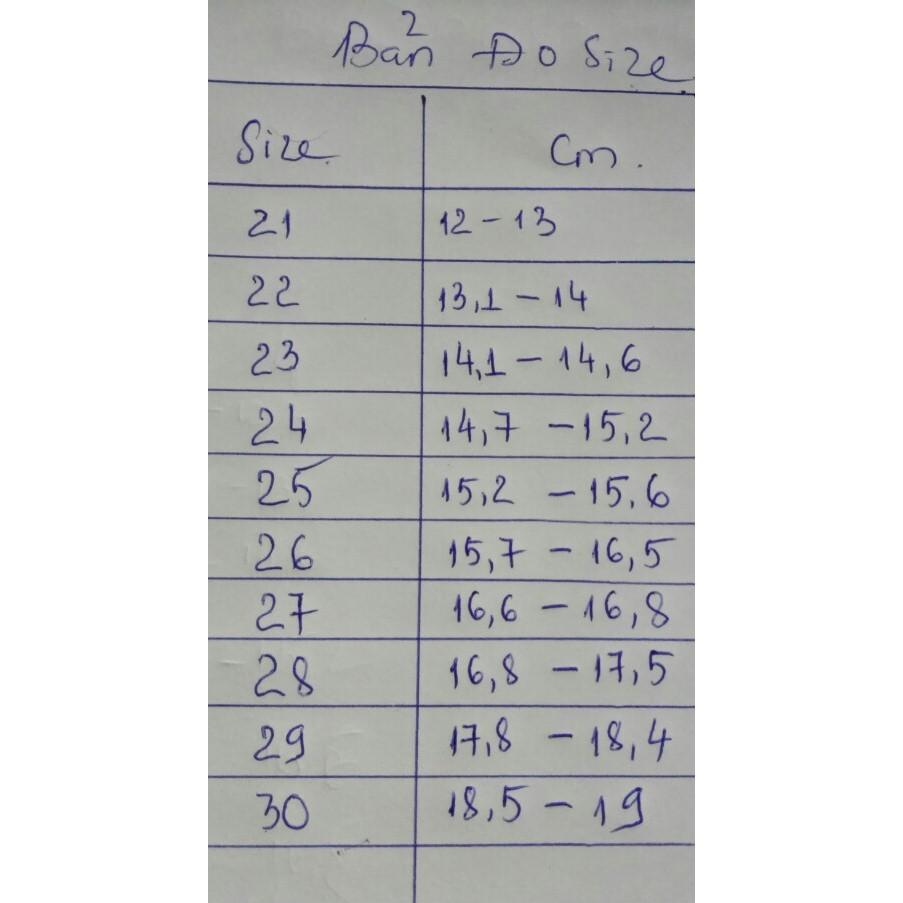 Bản Đo Size
Size Cm.
21 12 - 13
22 13,1 - 14
23 14,1 - 14,6
24 14,7 - 15,2
25 15,2 - 15,6
26 15,7 - 16,5
27 16,6 - 16,8
28 16,8 - 17,5
29 17,8 - 18,4
30 18,5 - 19